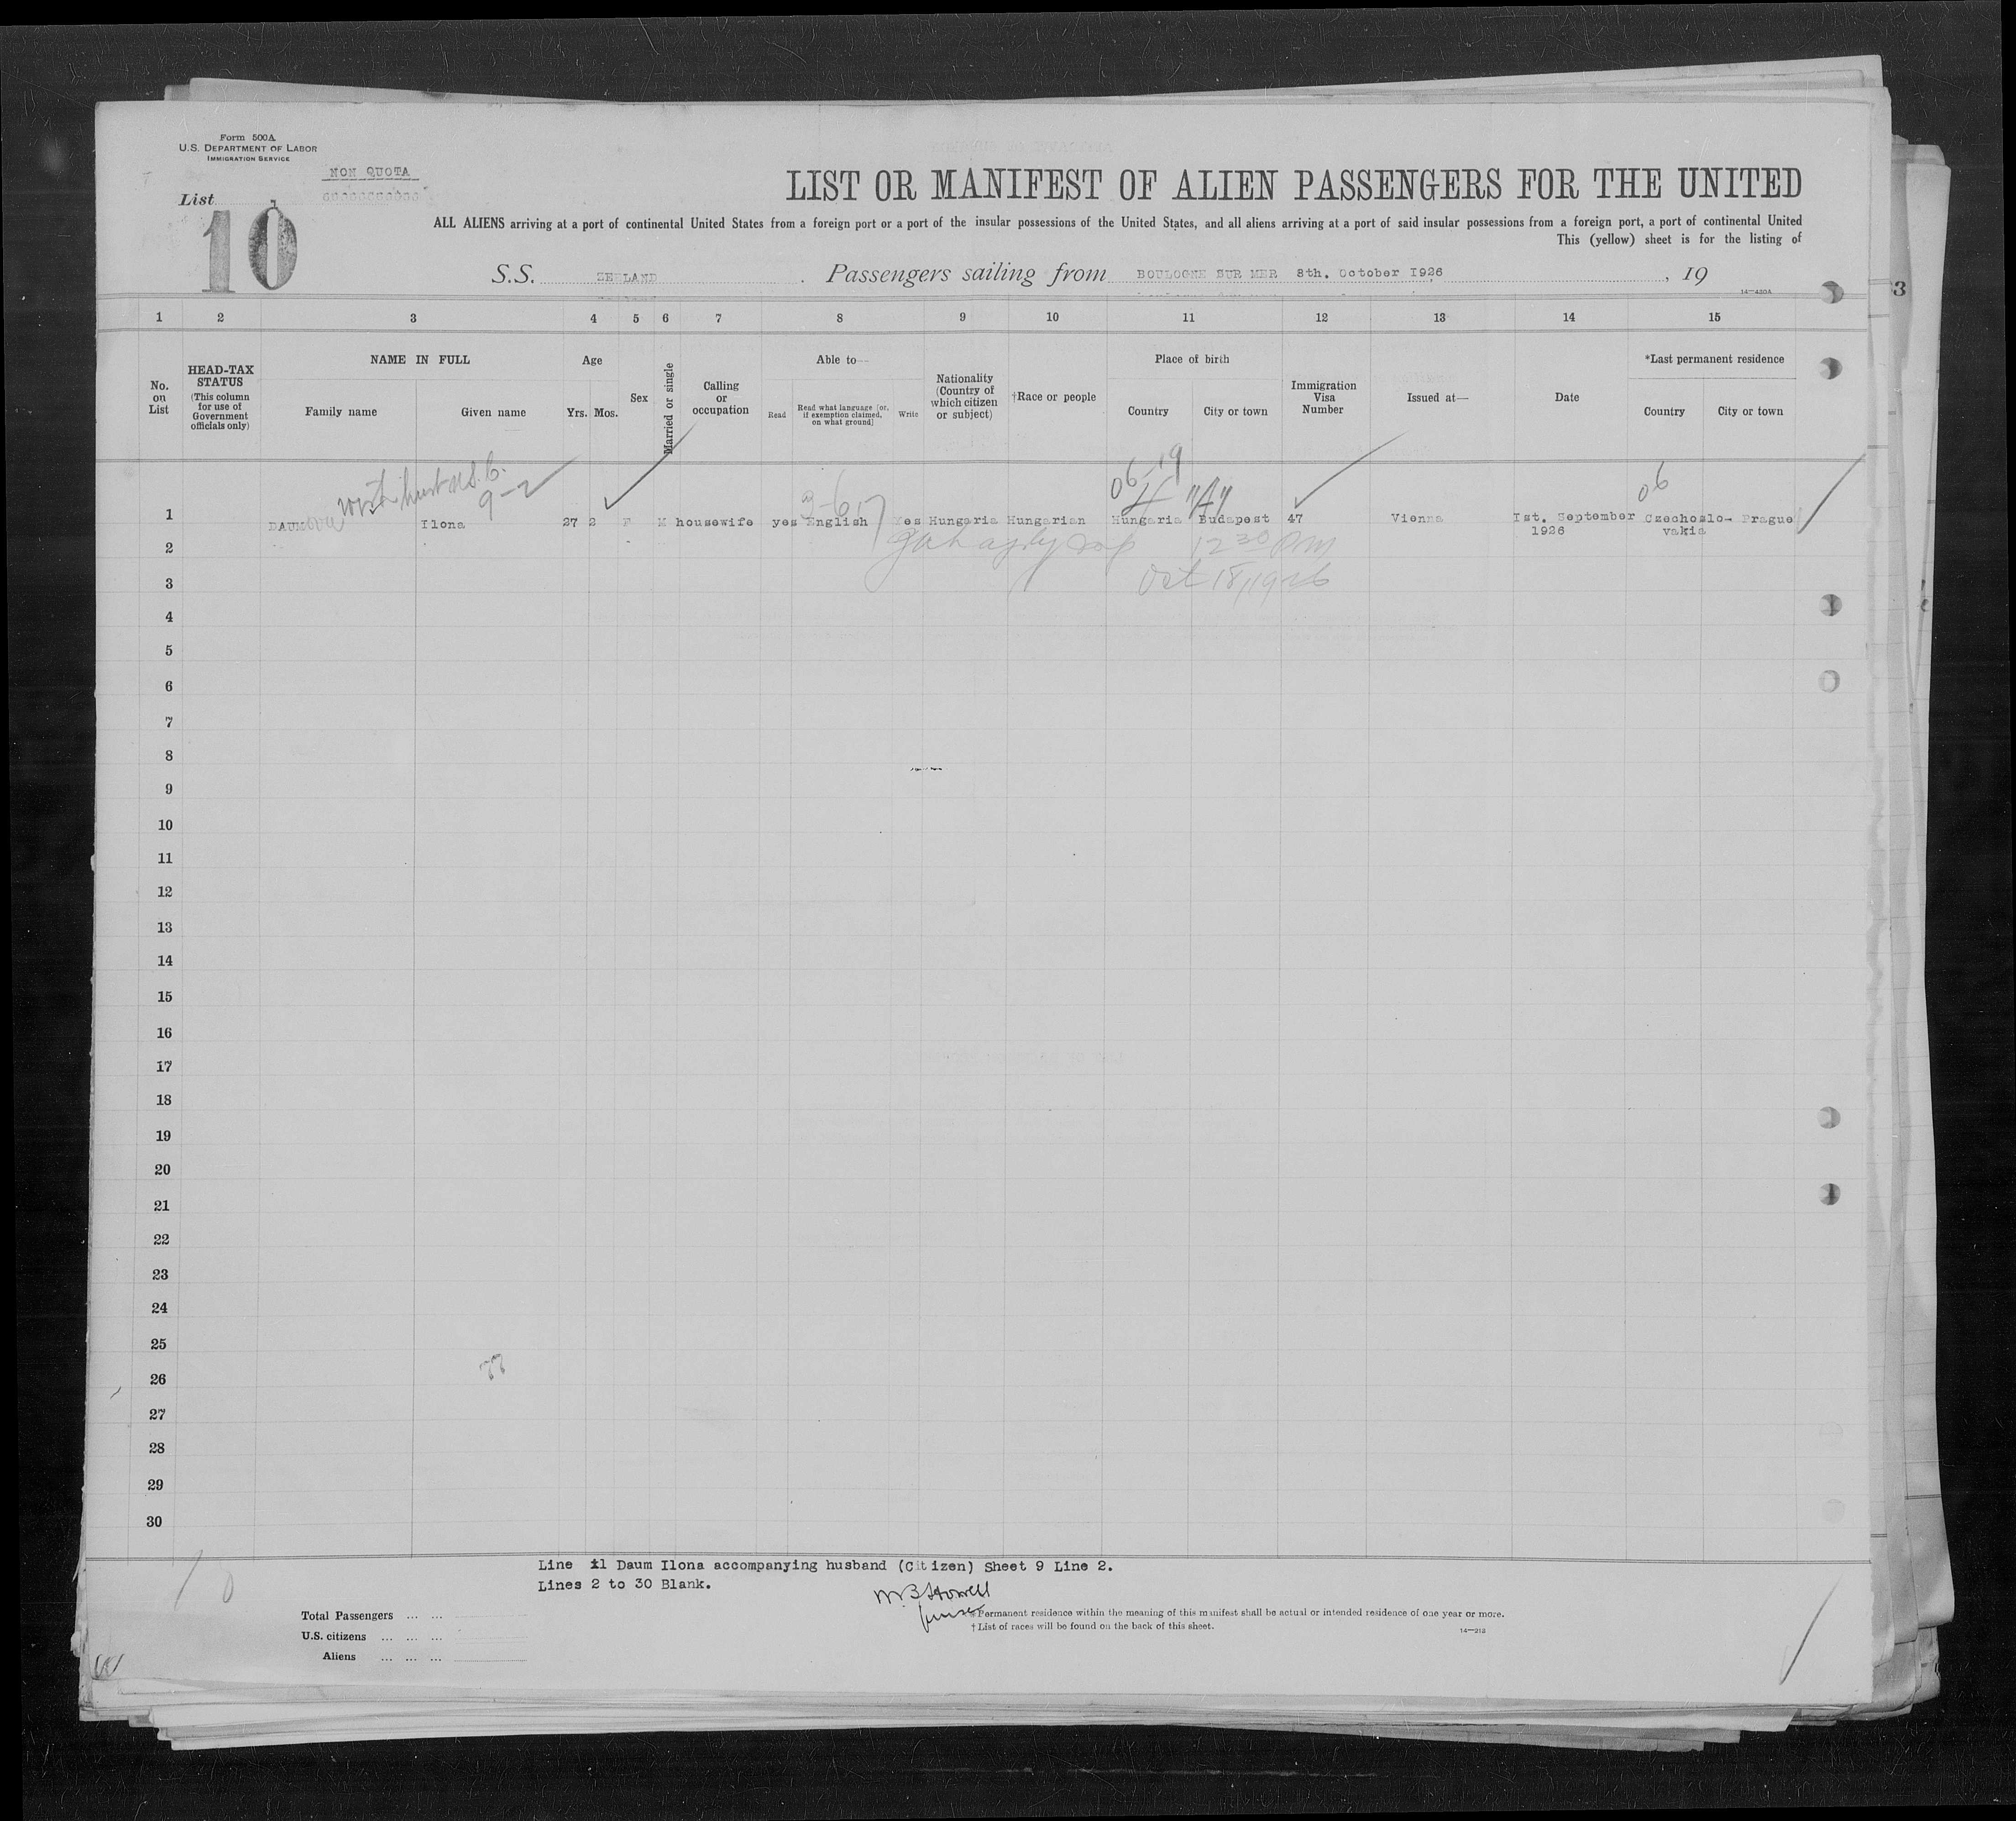 Form 500A
U.S. DEPARTMENT OF LABOR
IMMIGRATION SERVICE
NON QUOTA
List
10
LIST OR MANIFEST OF ALIEN PASSENGERS FOR THE UNITED
ALL ALIENS arriving at a port of continental United States from a foreign port or a port of the insular possessions of the United States, and all aliens arriving at a port of said insular possessions from a foreign port, a port of continental United
This (yellow) sheet is for the listing of
S.S. ZEELAND. Passengers sailing from BOULOGNE SUR MER 8th. October 1926, 19
14—430A
3
1 2 3 4 5 6 7 8 9 10 11 12 13 14 15
No. on List
HEAD-TAX STATUS (This column for use of Government officials only)
NAME IN FULL
Family name
Given name
Age
Yrs. Mos.
Sex
Married or single
Calling or occupation
Able to—
Read
Read what language [or, if exemption claimed, on what ground]
Write
Nationality (Country of which citizen or subject)
†Race or people
Place of birth
Country
City or town
Immigration Visa Number
Issued at—
Date
*Last permanent residence
Country
City or town
with husb U.S.C.
9-2
3-617
06-19
06
1 DAUM Ilona 27 2 F M housewife yes English Yes Hungaria Hungarian Hungaria Budapest 47 Vienna Ist. September 1926 Czechoslo-vakia Prague
12 30 PM
Oct 18, 1926
2
3
4
5
6
7
8
9
10
11
12
13
14
15
16
17
18
19
20
21
22
23
24
25
26
27
28
29
30
77
10
Line 11 Daum Ilona accompanying husband (Citizen) Sheet 9 Line 2.
Lines 2 to 30 Blank.
Total Passengers ... ...
U.S. citizens ... ... ...
Aliens ... ... ...
*Permanent residence within the meaning of this manifest shall be actual or intended residence of one year or more.
†List of races will be found on the back of this sheet.
14—213